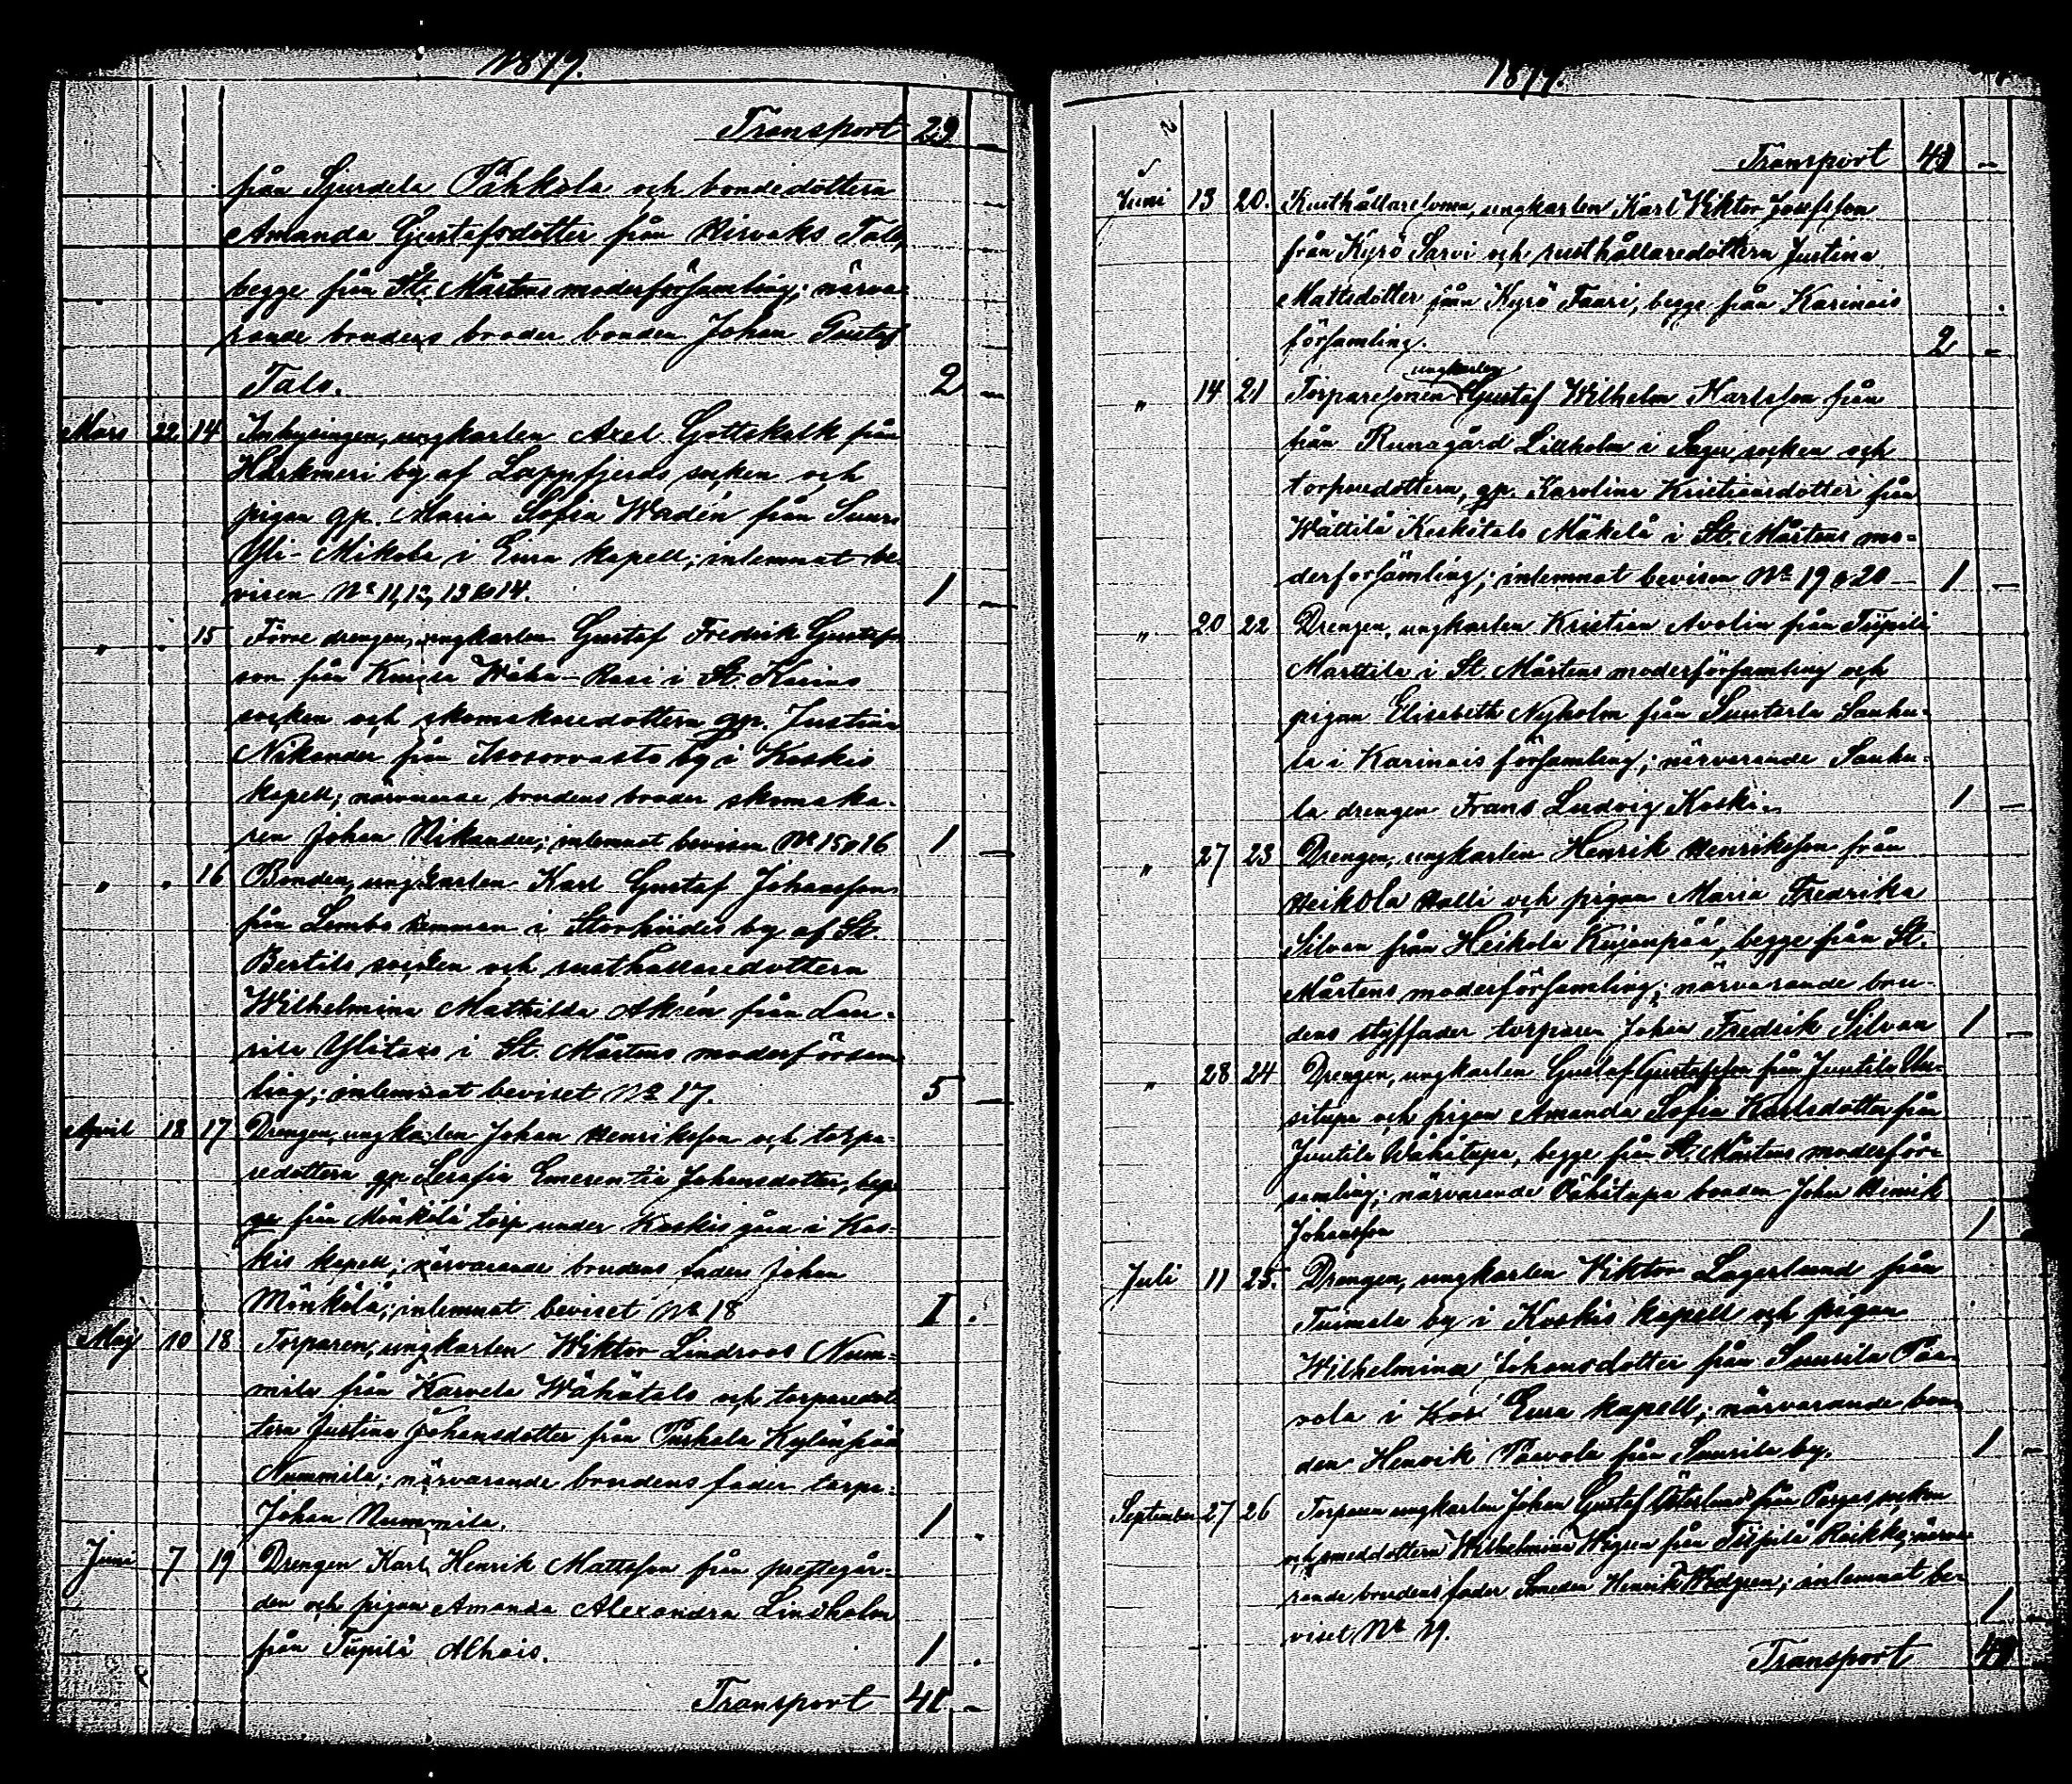 1879.
Transport 29 -
från Sjurdela Pahkola och bondedottern
Amanda Gustafsdotter från Hirvaks Talo,
begge från St. Mårtens moderförsamling; närva-
rande brudens broder bonden Johan Gustaf
Talo. 2 -
Mars 22 14 Inhysingen, ungkarlen Axel Gottskalk från
Härkmeri by af Lappfjerds socken och
pigan gp. Maria Sofia Wadén från Suur
Yli-Mikola i Eura kapell; inlemnat be-
visen No 11, 12, 13 & 14. 1 -
" " 15 Förre drengen, ungkarlen Gustaf Fredrik Gustafs-
son från Wäha-Rasi i St. Karins
socken och skomakaredottern gp. Justina
Nikander från Isosorvasto by i Koskis
kapell; närvarande brudens broder skomaka-
ren Johan Nikander; inlemnat bevisen No 15 & 16 1 -
" " 16 Bonden, ungkarlen Karl Gustaf Johansson
från Lembo i Storhiidis by af St.
Bertils socken och rusthållaredottern
Wilhelmina Mathilda Akrén från Lau-
rila Ylitalo i St. Mårtens moderförsam-
ling; inlemnat beviset No 17. 5 -
April 18 17 Drengen, ungkarlen Johan Henriksson och torpa-
redottern gp. Serafia Emerentia Johansdotter, beg-
ge från Mönkölä torp under Koskis gård i Kos-
kis kapell; närvarande brudens fader Johan
Mönkölä; inlemnat beviset No 18 1 .
Maj 10 18 Torparen, ungkarlen Wiktor Lindroos Num-
mila från Karvela Wähätalo och torparedot-
tern Justina Johansdotter från Purhala Kylänpää
Nummila; närvarande brudens fader torp.
Johan Nummila. 1 .
Juni 7 19 Drengen Karl Henrik Mattsson från prestegår-
den och pigan Amanda Alexandra Lindholm
från Tiipilä Alhais. 1 .
Transport 41 -
1879.
Transport 41 -
Juni 13 20. Rusthållaresonen, ungkarlen Karl Viktor Josefsson
från Kyrö Sarvi och rusthållaredottern Justina
Mattsdotter från Kyrö Faari, begge från Karinais
församling. 2 -
" 14 21 Torparesonen ungkarlen Gustaf Wilhelm Karlsson från
från Runagård Lillholm i Sagu socken och
torparedottern, gp. Karolina Kristiansdotter från
Wättilä Keskitalo Mäkelä i St. Mårtens mo-
derförsamling; inlemnat bevisen No 19 & 20 1 -
" 20 22 Drengen, ungkarlen Kristian Avolin från Tiipilä
Marttila i St. Mårtens moderförsamling och
pigan Elisabeth Nyholm från Suuterla Sauhu-
la i Karinais församling; närvarande Sauhu-
la drengen Frans Ludvig Koski. 1 -
" 27 23 Drengen, ungkarlen Henrik Henriksson från
Heikola Halli och pigan Maria Fredrika
Silvan från Heikola Kujanpää, begge från St.
Mårtens moderförsamling; närvarande bru-
dens styffader torparen Johan Fredrik Silvan 1 -
" 28 24 Drengen, ungkarlen Gustaf Gustafsson från Juutila Uu-
situpa och pigan Amanda Sofia Karlsdotter från
Juutila Wähätupa, begge från St. Mårtens moderför-
samling; närvarande Vähätupa bonden Johan Henrik
Johansson 1
Juli 11 25. Drengen, ungkarlen Viktor Lagerlund från
Tuimala by i Koskis kapell och pigan
Wilhelmina Johansdotter från Suurila Paa-
vola i Eura kapell; närvarande bon-
den Henrik Paavola från Suurila by. 1 -
September 27 26 Torparen ungkarlen Johan Gustaf Österlund från Pargas socken
och smeddottern Wilhelmina Wigren från Tiipilä Raikko; närva-
rande brudens fader Smeden Henrik; inlemnat be-
viset No 29. 1 -
Transport